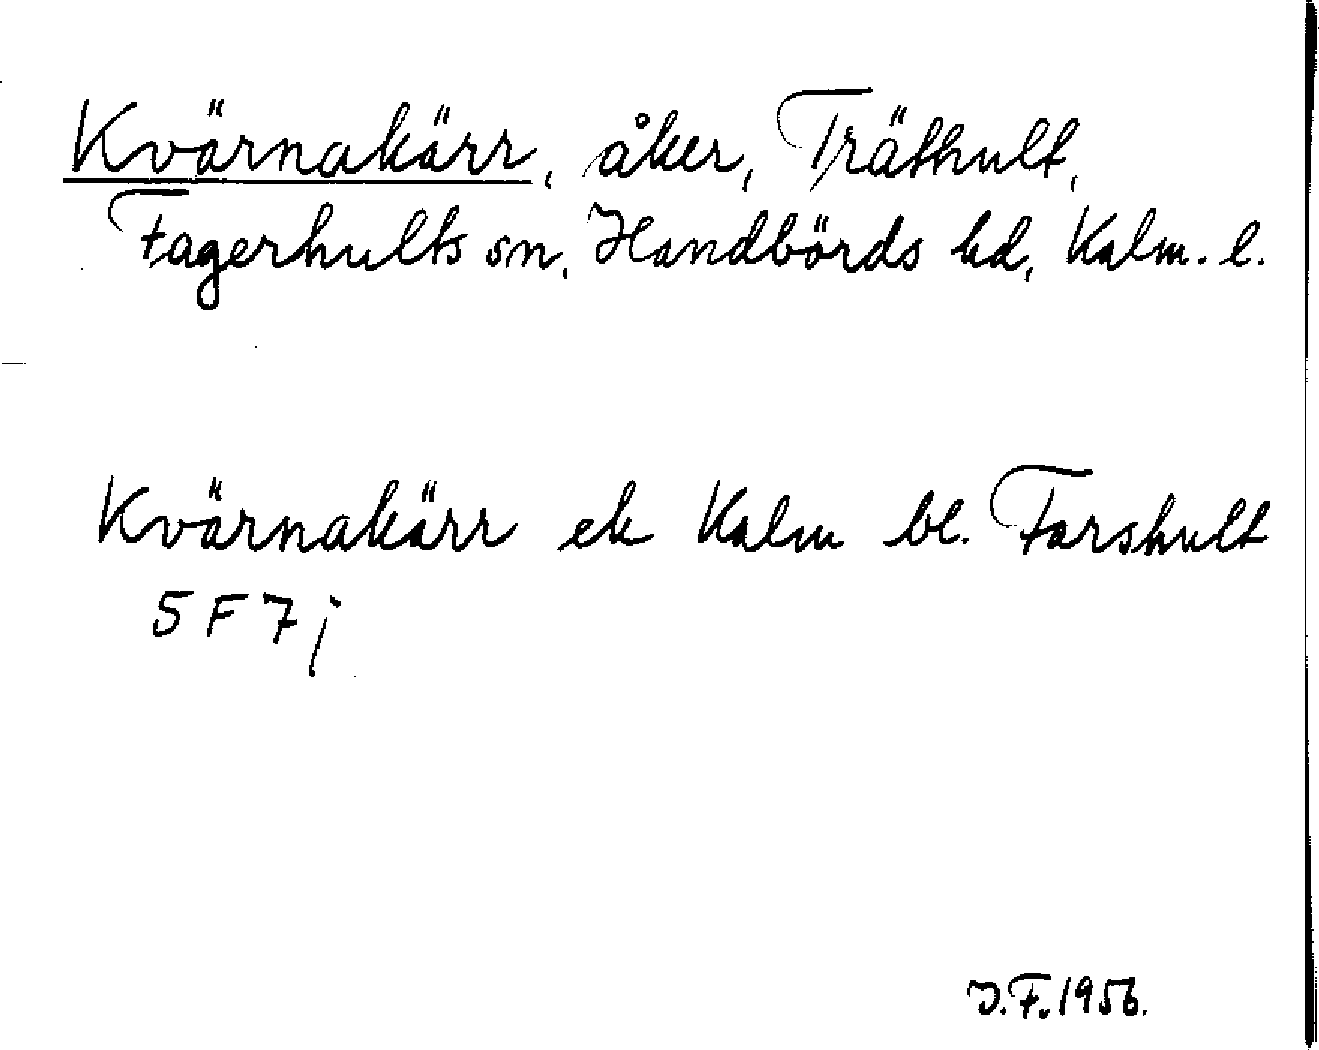 Kvärnakärr, åker, Träthult,
Fagerhults sn, Handbörds hd, Kalm. l.
Kvärnakärr ek Kalm bl. Farshult
5 F 7 j
J. F. 1956.